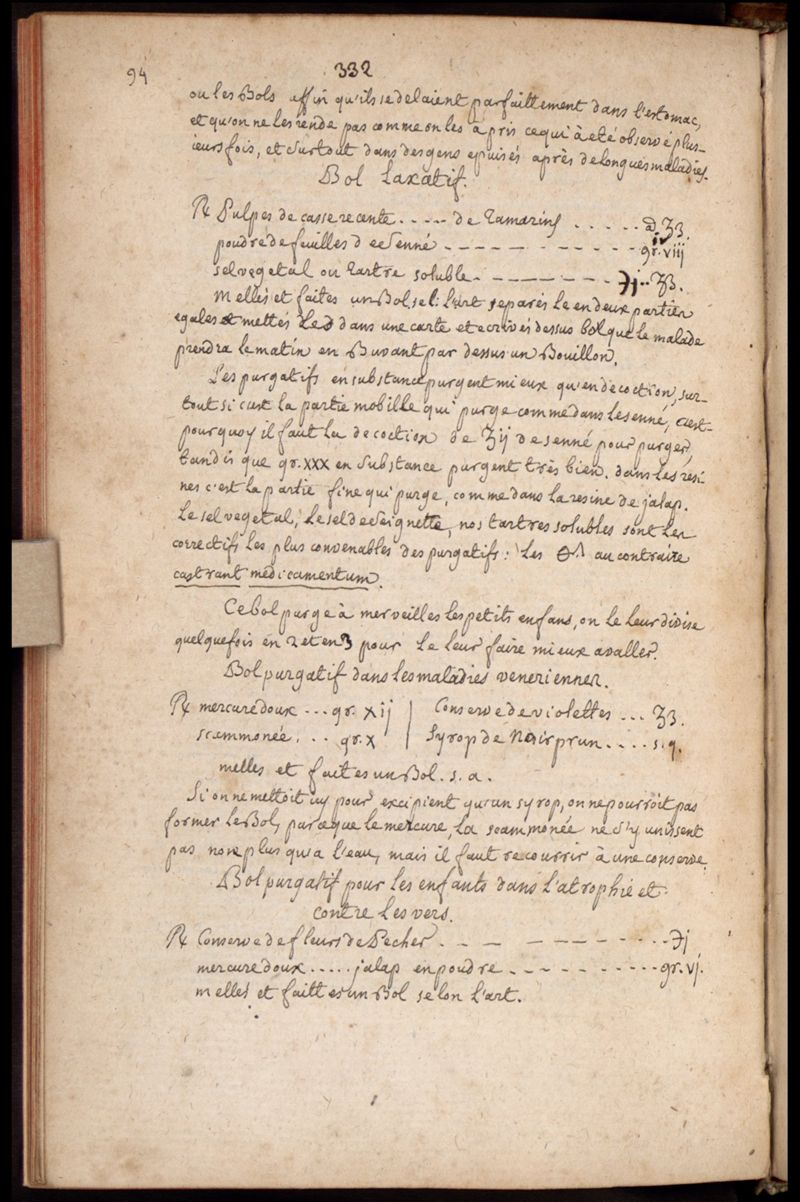 94 332
ou les Bols affin qu'ils se delaient parfaittement dans l'estomac,
et qu'on ne les rende pas comme on les à pris ce qui à eté observé plus-
ieurs fois, et surtout dans des gens epuisés après de longues maladies.
Bol Laxatif.
℞ Pulpes de casse recente ..... de Tamarins ..... a ʒß.
poudre de feuilles de Senné ---------- gr. viij
sel vegetal ou Tartre soluble ---------- ʒß.
mellés et faites un Bol sel: l'art separés le en deux parties
egales et mettés les dans une carte et ecrivés dessus bol que le malade
prendra le matin en Buvant par dessus un Bouillon.
Les purgatifs en substance purgent mieux qu'en decoction, sur-
tout si c'est la partie mobille qui purge comme dans le senné, c'est-
pourquoy il faut la decoction de ʒij de senné pour purger,
tandis que gr. xxx en substance purgent très bien. dans les resi-
nes c'est la partie fine qui purge, comme dans la resine de jalap.
Le sel vegetal, le sel de Seignette, nos tartres solubles sont les
correctifs les plus convenables des purgatifs: les au contraire
castrant medicamentum.
Ce bol purge à merveilles les petits enfans, on le leur divise
quelquefois en 2 et en 3 pour le leur faire mieux avaller.
Bol purgatif dans les maladies veneriennes.
℞ mercure doux ... gr. xij | Conserve de violettes ... ʒß.
scammonée ... gr. x | Syrop de Nairprun .... s.q.
mellés et faites un Bol. s. a.
Si on ne mettoit icy pour excipient qu'un syrop, on ne pourroit pas
former le Bol, parceque le mercure, la scammonée ne s'y unissent
pas non plus qu'a l'eau, mais il faut recourrir à une conserve.
Bol purgatif pour les enfants dans l'atrophie et
contre les vers.
℞ Conserve de fleurs de Pecher ---------- ʒj
mercure doux ..... jalap en poudre ---------- gr. vj.
mellés et faittes un Bol selon l'art.